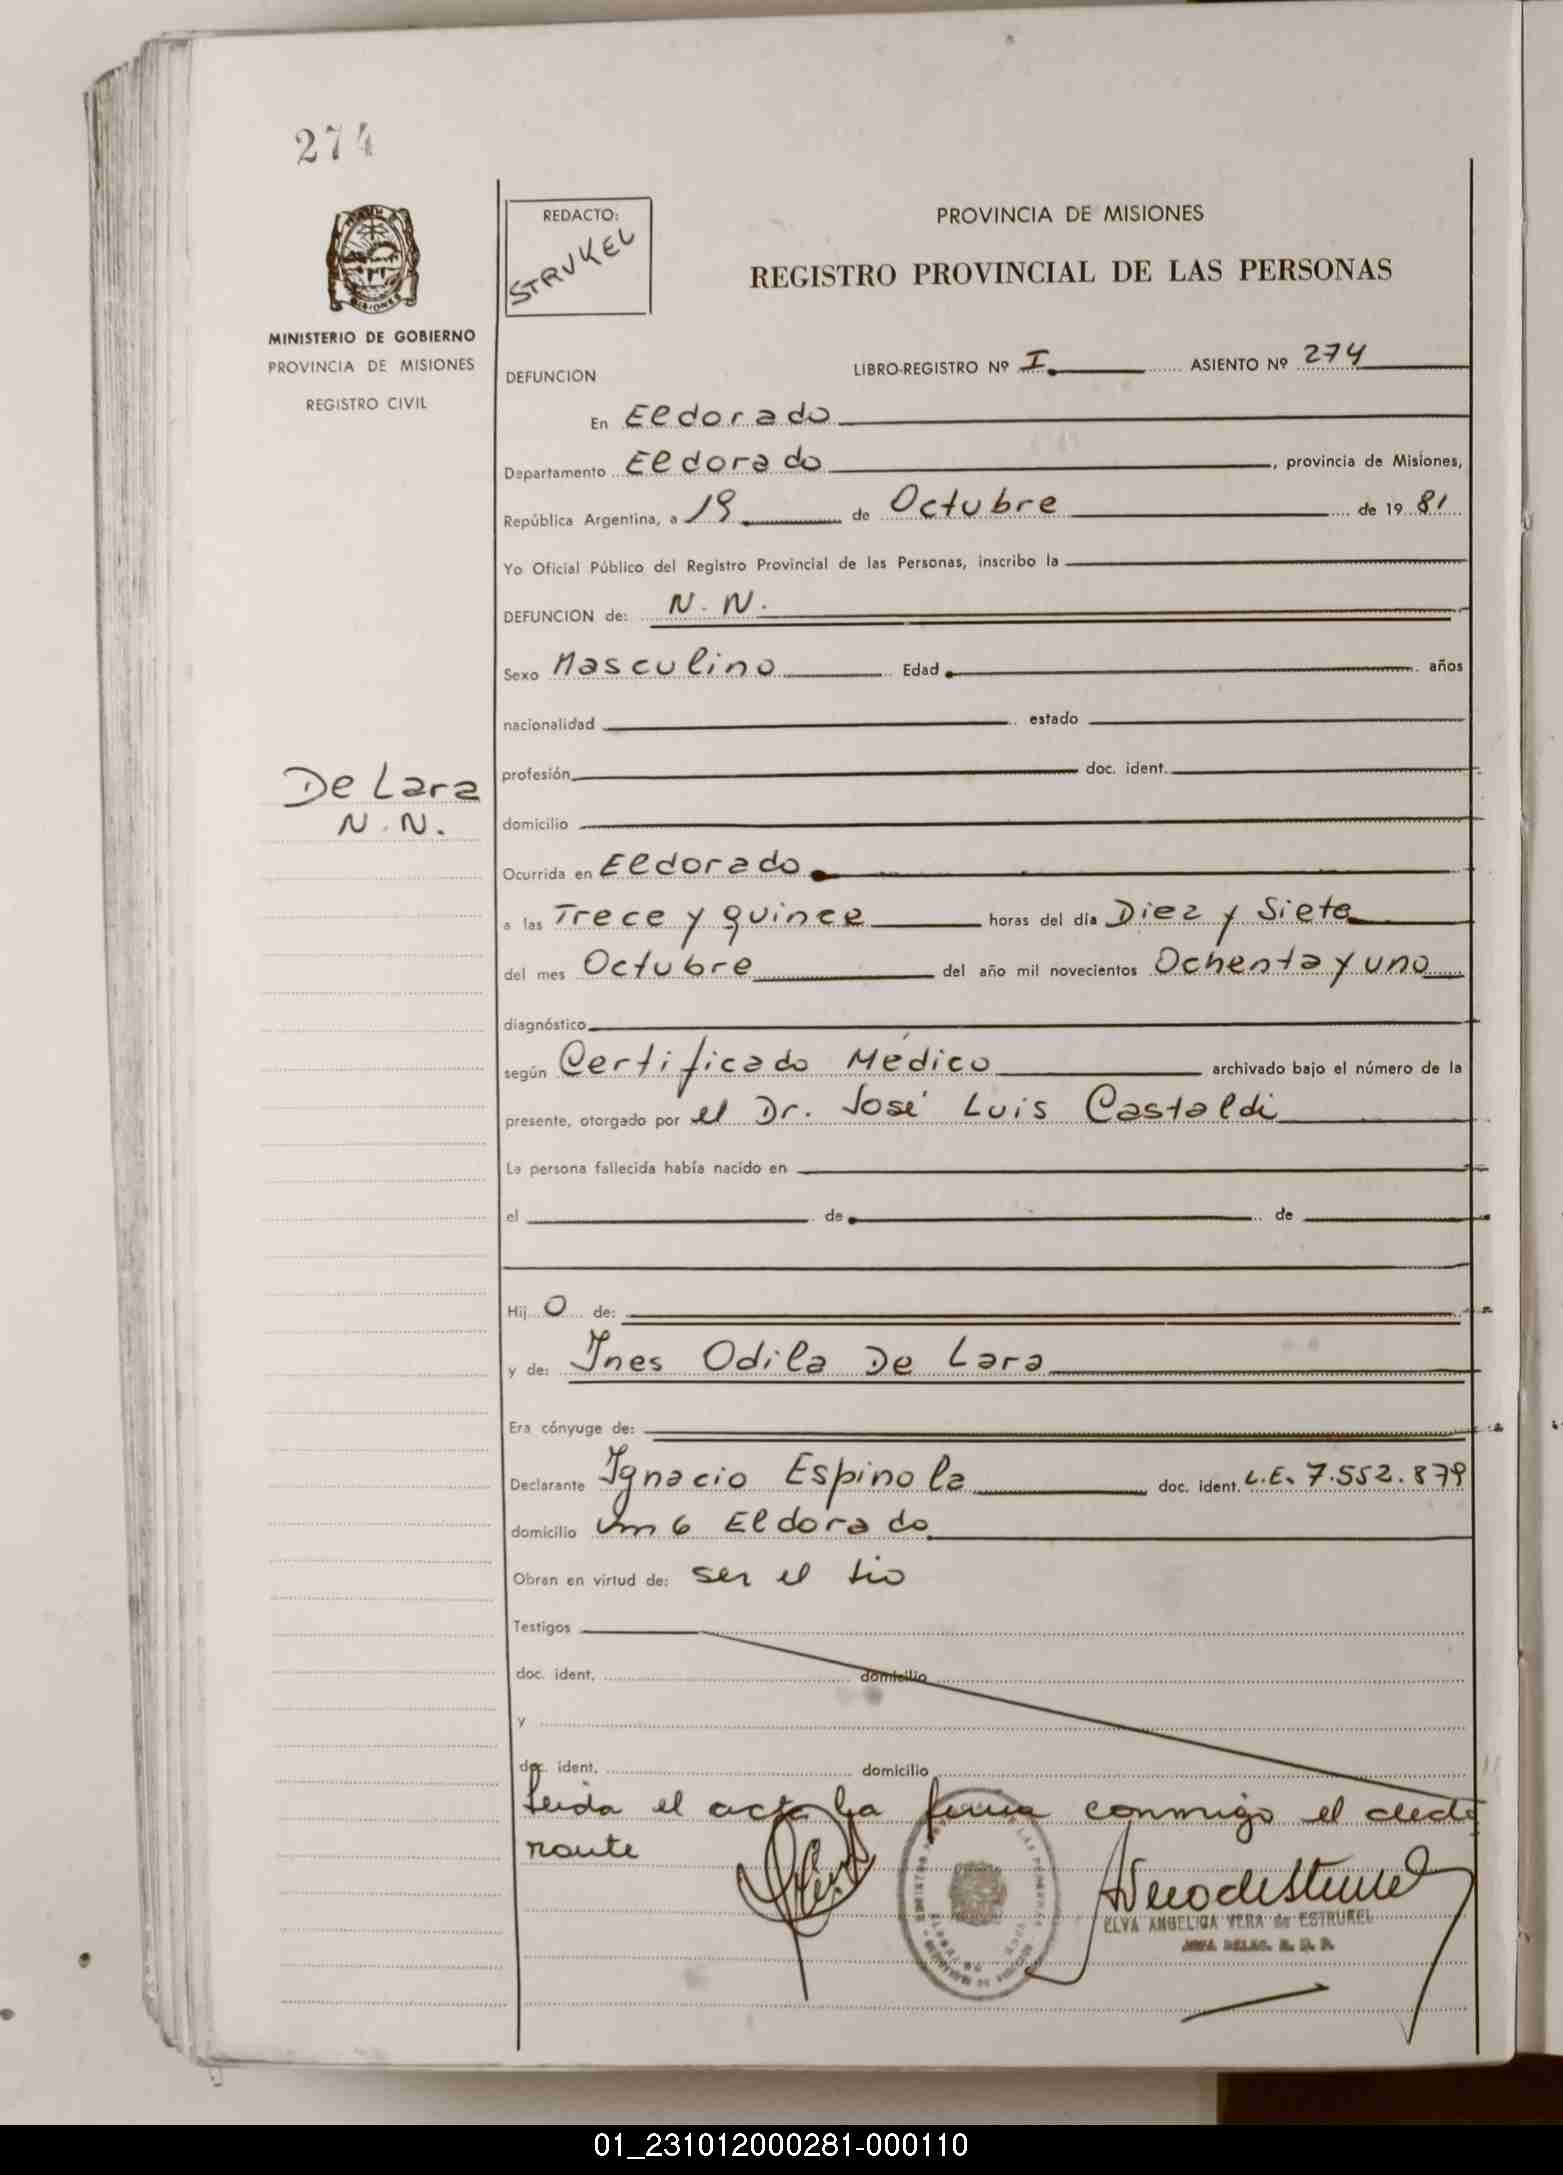 274
REDACTO:
STRUKEL
PROVINCIA DE MISIONES
REGISTRO PROVINCIAL DE LAS PERSONAS
MISIONES
MINISTERIO DE GOBIERNO
PROVINCIA DE MISIONES
REGISTRO CIVIL
DEFUNCION
LIBRO-REGISTRO Nº I. ASIENTO Nº 274
En Eldorado
Departamento Eldorado, provincia de Misiones,
República Argentina, a 19 de Octubre de 1981
Yo Oficial Público del Registro Provincial de las Personas, inscribo la
DEFUNCION de: N. N.
Sexo Masculino Edad años
nacionalidad estado
profesión doc. ident.
De Lara
N. N.
domicilio
Ocurrida en Eldorado
a las Trece y quince horas del día Diez y Siete
del mes Octubre del año mil novecientos Ochenta y uno
diagnóstico
según Certificado Médico archivado bajo el número de la
presente, otorgado por el Dr. José Luis Castaldi
La persona fallecida había nacido en
el de de
Hij o de:
y de: Ines Odila De Lara
Era cónyuge de:
Declarante Ignacio Espinola doc. ident. L.E. 7.552.879
domicilio Km 6 Eldorado
Obran en virtud de: ser el tio
Testigos
doc. ident. domicilio
y
doc. ident. domicilio
Leida el acta la firma conmigo el decla
rante
ELVA ANGELICA VERA de ESTRUKEL
01_231012000281-000110